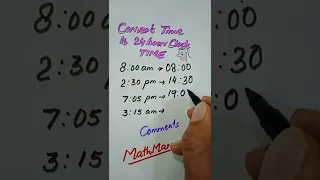 Convert Time
to 24 hour Clock
TIME
8:00 am → 08:00
2:30 pm → 14:30
7:05 pm → 19:0
3:15 am →
Comments
MathMari